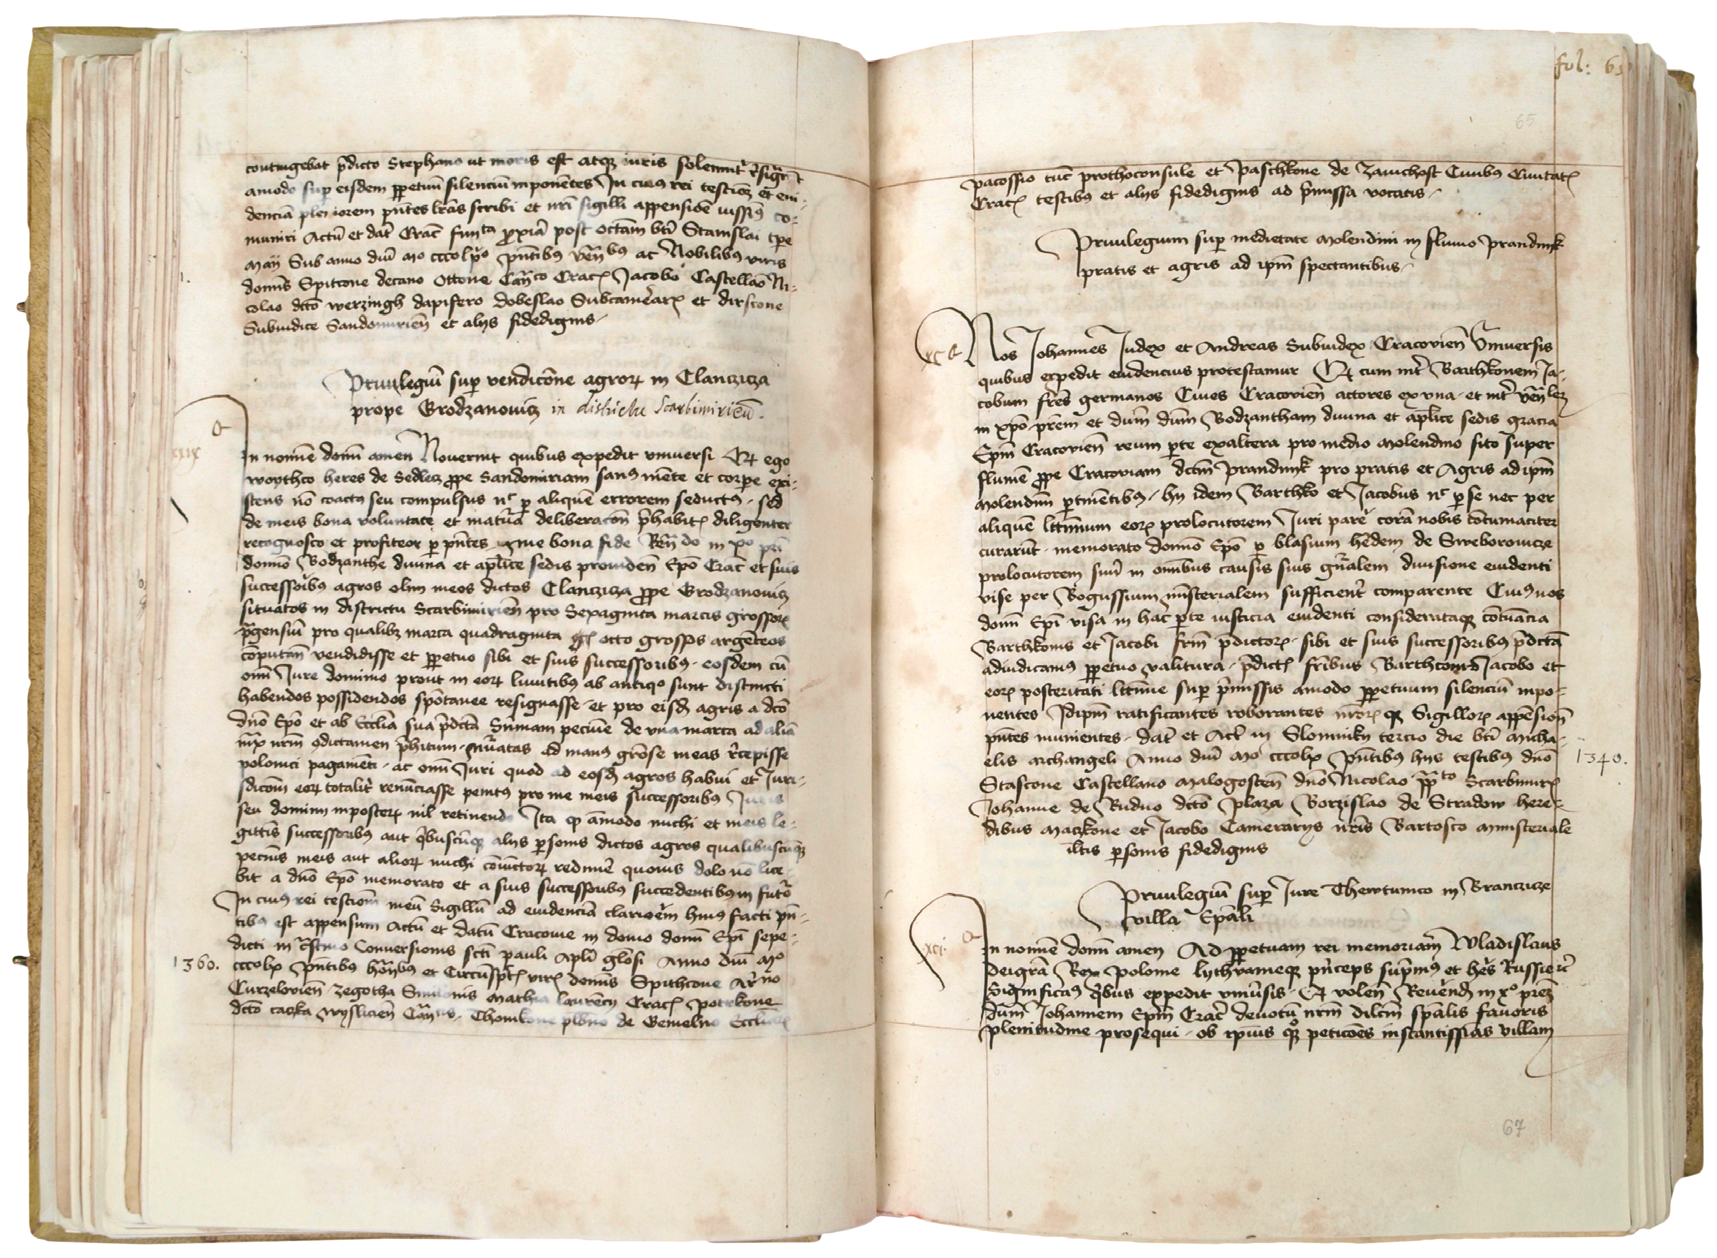 contingebat p̄dicto Stephano ut moris est atq̧ iuris solemnit̄ r̄sig̅r̅t
amodo sup eisdem ꝑpetuū silenciū inponētes In cuiꝰ rei testioȝ et eui-
denciā pleniorem p̄ntes lr̄as scribi et nr̄i sigilli appensiōe iussimꝰ co-
muniri Actū et dat̄ Crac̄ post octauā bt̄i Stanislai
Maii Sub anno dnī Mo cccolx̊ p̄ntibꝰ ac Nobilibꝰ viris
domīs Spitcone decano Ottone Cañco Crac̄ Jacobo Castellāo Ni-
colao dc̄to werzingh dapifero dobeslao Subcamēar̄ et dirscone
Subiudice Sandomirień et alijs fidedignis
Priuilegiū sup vendicōne agroꝝ in Clancziza
prope Grodzanouicz in districtu Scarbimirieñ.
In nomīe domī amen Nouerint quibus expedit vniuersi Qꝫ ego
woythco heres de Sedlecz ꝓpe Sandomiriam sanꝰ mēte et corꝑe exi-
stens nō coactꝰ seu compulsus nc̄ ꝑ aliquē errorem seductꝰ sed
de meis bona voluntate et matura deliberacōn p̄habit̄ diligenter
recognosco et profiteor ꝑ p̄ntes bona fide in xp̊o
domīo Bodzanthe diuina et apl̄ice sedis prouideñ Epō Crac̄ et suis
successoribꝰ agros olim meos dictos Clancziza ꝓpe Grodzanouicz
situatos in districtu Scarbimirień pro Sexaginta marcis grossoꝝ
p̄gensiū pro qualibȝ marca quadraginta octo grossos argēteos
cōputañ vendidisse et ꝑpetuo sibi et suis successoribꝰ eosdem cū
om̄i Jure dominio prout in eoꝝ limitibꝰ ab antiqͦ sunt distincti
habendos possidendos spōtanee resignasse et pro eisdȝ agris a dc̄o
dn̄o Epō et ab Ecclīa sua p̄dc̄tā Sūmam pecūie de vna marca ad aliā
ad manꝰ meas r̄cepisse
polonici pagamēti ac om̄i Juri quod ad eosdȝ agros habui et Juri-
sdicōm eoꝝ totalit̄ renūciasse penitꝰ pro me meis successoribꝰ
seu dominū inposteꝝ nil retinendo Ita qꝫ amodo michi et meis le-
gittīs successoribꝰ aut q̄buscūqꝫ alijs ꝑsonis dictos agros qualibuscūqꝫ
pecūis meis aut alioꝝ michi cōiūctoꝝ redimē quouis dolo nō lice-
bit a dn̄o Epō memorato et a suis successoribꝰ succedentibꝰ in futuro
In cuiꝰ rei testioñ meū Sigillū ad euidenciā clariorem huiꝰ facti p̄n-
tibꝰ est appensum Actū et datū Cracouie in domo domī Ep̄i sepe-
dicti in Conuersionis sc̄ti pauli Apl̄i Anno dn̄i Mo
1360.
cccolx p̄ntibus et Circūsp̄c̄t̄ vir̄ domīs Spithcone
Curzelouień Zegotha Mathia laurēcij Crac̄ potrkone
dc̄to caska wyslicień Thomkone de Gemelno Ecclīaꝝ
fol: 65
65
pacossio tūc prothoconsule et Paschkone de Zauichost Ciuibꝰ Ciuitat̄
Crac̄ testibꝰ et alijs fidedignis ad p̄missa vocatis
Priuilegium sup medietate Molendini in fluuio Prandnik
pratis et agris ad ipm̄ spectantibus
xc
Nos Johannes Judex et Andreas Subiudex Cracouień Vniuersis
quibus expedit euidencius protestamur Qꝫ cum int̄ Barthkonem Ja-
cobum fr̄es germanos Ciues Cracouień actores ex vna et int̄
in xp̄o p̄rem et dn̄m dn̄m Bodzantham diuina et apl̄ice sedis gracia
Ep̄m Cracouień reum ꝑte ex altera pro medio Molendino sito super
flumē ꝓpe Cracouiam dc̄tm̄ Prandnik pro pratis et Agris ad ipm̄
Molendinū ꝑtinētibꝰ hij idem Barthko et Jacobus nc̄ ꝑ se nec per
aliquē lttimum eoꝝ prolocutorem Juri parē corā nobis cōtumaciter
curarūt memorato domīo Epō ꝑ blasium hēdem de Sweborouicze
prolocutorem suū in om̄ibus causis suis gn̄alem diuisione euidenti
vise per Bogussium mīsterialem sufficient̄ comparente Cuiꝰ nos
domī Ep̄i visa in hac ꝑte iusticia euidenti considerataqꝫ cōtuācia
Barthkonis et Jacobi fr̄m p̄dictoꝝ sibi et suis successoribus p̄dc̄tā
adiudicamus ꝑpetuo valitura p̄dict̄ fr̄ibus Barthconi Jacobo et
eoꝝ posteritati lttime sup p̄missis amodo ꝑpetuum silenciū inpo-
nentes Idipm̄ ratificantes roborantes nr̄oꝝ qꝫ Sigilloꝝ appēsioñ
p̄ntes munientes dat̄ et Act̄ in Slomniky tercio die bt̄i Micha-
elis archangeli Anno dn̄i Mo cccolx p̄ntibus hijs testibus dn̄o
1340.
Stascone Castellano Malogosteñ dn̄o Nicolao Scarbimir̄
Johanne de Biduo dc̄to plaza Borzislao de Stradow here-
dibus Maczkone et Jacobo Camerarijs nr̄is Bartosco ministeriale
ltis ꝑsonis fidedignis
Priuilegiū sup Jure Thewtunico in Branczize
villa Ep̄ali
xci
In nomīe domī amen Ad ꝑpetuam rei memoriam Wladislaus
dei gr̄a Rex Polonie lythwanieqꝫ p̄nceps sup̄mꝰ et hēs Russie
Significamꝰ q̄bus expedit vniūsis Qꝫ voleñ Reuerendȝ in xp̊o p̄rez
dn̄m Johannem Ep̄m Crac̄ deuotū nr̄m dilc̄m sp̄alis fauoris
plenitudine prosequi ob ipius qꝫ peticōes instantissimas villam
67